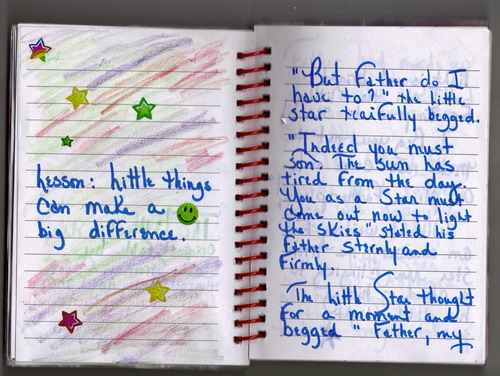 Lesson: Little things
can make a
big difference.
"But Father do I
have to?" the little
star tearfully begged.
"Indeed you must
son. The sun has
tired from the day.
You as a Star must
come out now to light
the skies" stated his
father sternly and
firmly.
The little Star thought
for a moment and
begged " Father, my